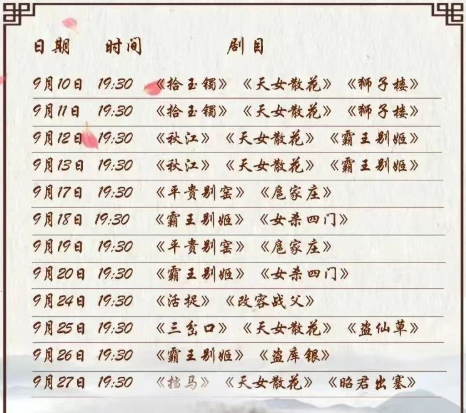 日期 时间 剧目
9月10日 19:30 《拾玉镯》《天女散花》《狮子楼》
9月11日 19:30 《拾玉镯》《天女散花》《狮子楼》
9月12日 19:30 《秋江》《天女散花》《霸王别姬》
9月13日 19:30 《秋江》《天女散花》《霸王别姬》
9月17日 19:30 《平贵别窑》《扈家庄》
9月18日 19:30 《霸王别姬》《女杀四门》
9月19日 19:30 《平贵别窑》《扈家庄》
9月20日 19:30 《霸王别姬》《女杀四门》
9月24日 19:30 《活捉》《改容战父》
9月25日 19:30 《三岔口》《天女散花》《盗仙草》
9月26日 19:30 《霸王别姬》《盗库银》
9月27日 19:30 《挡马》《天女散花》《昭君出塞》